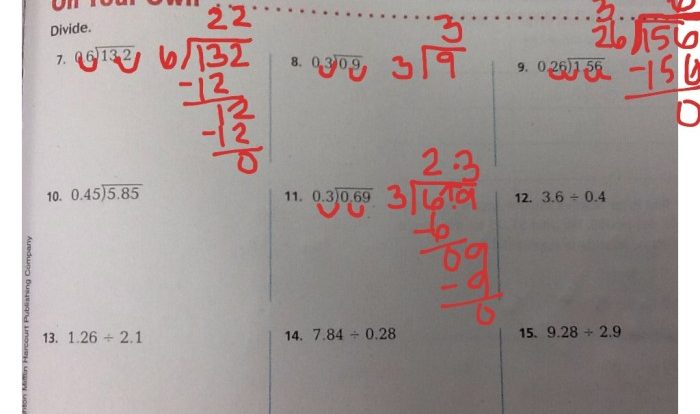 On Your Own
Divide.
7. 0.6)13.2
22
6)132
-12
12
-12
0
8. 0.3)0.9
3
3)9
9. 0.26)1.56
3
6
26)156
-156
0
10. 0.45)5.85
11. 0.3)0.69
2.3
3)6.9
-6
09
-9
0
12. 3.6 ÷ 0.4
13. 1.26 ÷ 2.1
14. 7.84 ÷ 0.28
15. 9.28 ÷ 2.9
Mifflin Harcourt Publishing Company